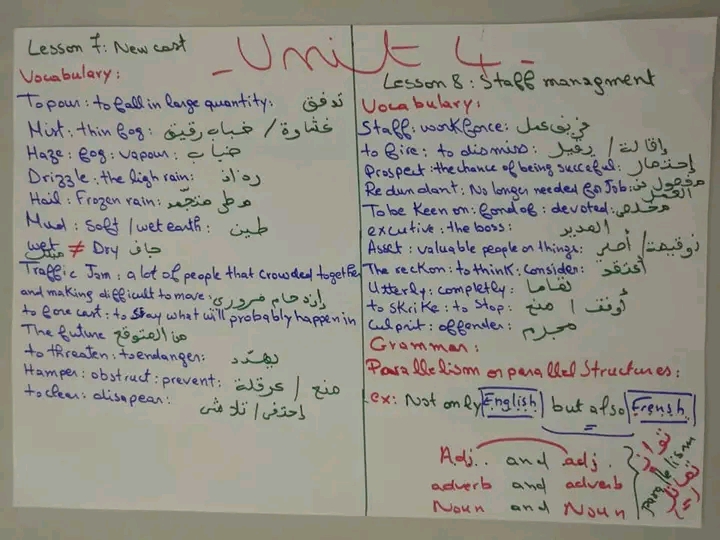 - Unit 4 -
Lesson 7: New cast
Vocabulary:
To pour: to fall in large quantity: تدفق
Mist: thin fog: غشاوة / ضباب رقيق
Haze: fog: vapour: ضباب
Drizzle: the high rain: رذاذ
Hail: Frozen rain: مطر متجمد
Mud: soft / wet earth: طين
wet مبتل ≠ Dry جاف
Traffic Jam: a lot of people that crowded together
and making difficult to move: ازدحام مروري
to fore cast: to stay what will probably happen in
The future من المتوقع
to threaten: to endanger: يهدد
Hamper: obstruct: prevent: منع / عرقلة
to clear: disapear: إختفى / تلاشى
Lesson 8: Staff managment
Vocabulary:
Staff: work force: فريق عمل
to fire: to dismiss: إقالة / يقيل
Prospect: the chance of being succeful: إحتمال
Redundant: No longer needed for Job: مفصول من العمل
To be Keen on: fond of: devoted: مخلص
excutive: the boss: المدير
Asset: valuable people on things:
The reckon: to think: consider: أعتقد
Utterly: completly: تماما
to skrike: to stop: أوقف / منع
Culprit: offender: مجرم
Grammar:
Parallelism or parallel Structures:
ex: Not only English but also Frensh
Adj.. and adj.
adverb and adverb
Noun and Noun
parallelism